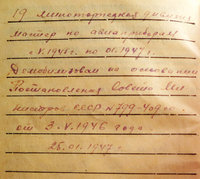 19 минноторпедная дивизия
мастер по авиаприборам
с V.1945г. по 01.1947г.
Демобилизован на основании
Постановления Совета Ми
нистров СССР №799-409сс
от 3-V-1946 года
25.01.1947г.